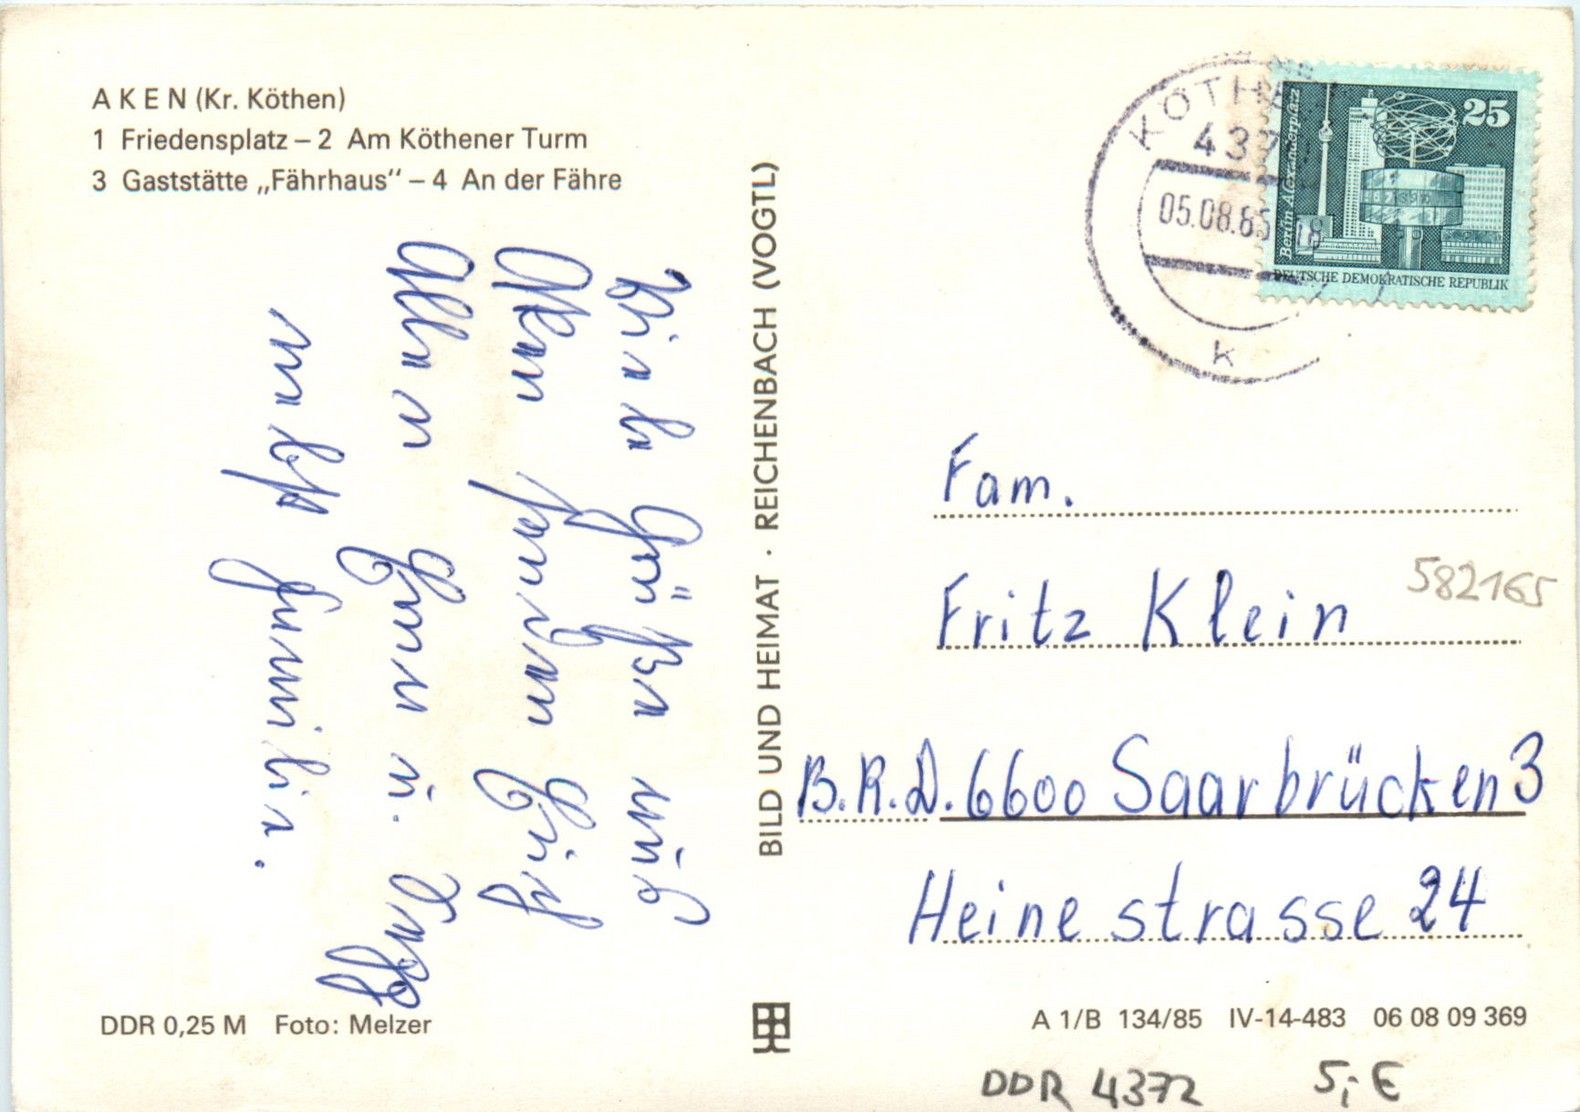 AKEN (Kr. Köthen)
1 Friedensplatz – 2 Am Köthener Turm
3 Gaststätte „Fährhaus“ – 4 An der Fähre
Viele Grüße aus
Aken senden Euch
Allen u.
nebst Familie.
DDR 0,25 M Foto: Melzer
BILD UND HEIMAT · REICHENBACH (VOGTL)
KÖTHE
437
05.08.85
18
k
25
Berlin, Alexanderplatz
DEUTSCHE DEMOKRATISCHE REPUBLIK
Fam.
Fritz Klein
582165
B.R.D. 6600 Saarbrücken 3
Heinestrasse 24
A 1/B 134/85 IV-14-483 06 08 09 369
DDR 4372 5,- €